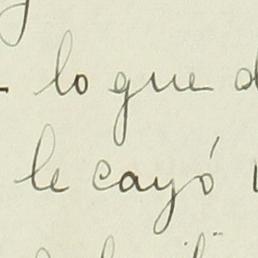 lo que
le cayó